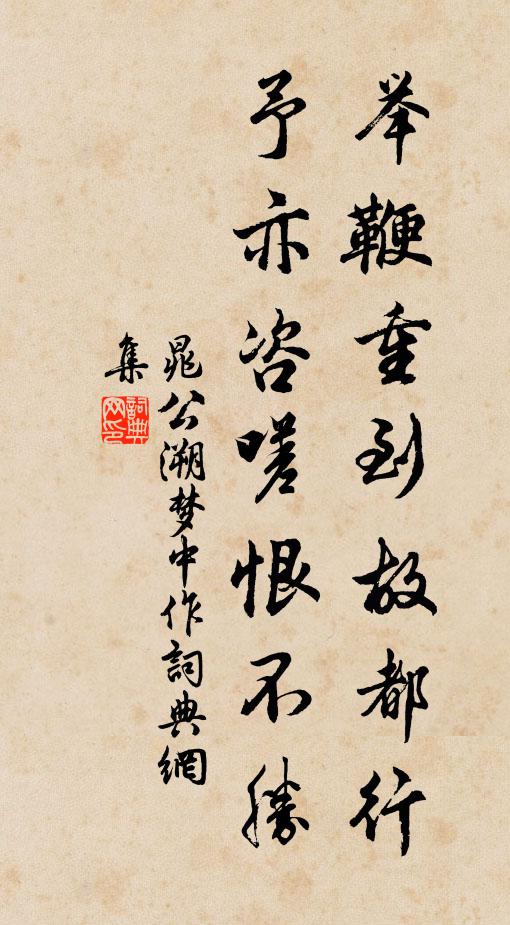 举鞭重到故都行
予亦咨嗟恨不勝
晁公溯梦中作詞典網
集
詞典
网印